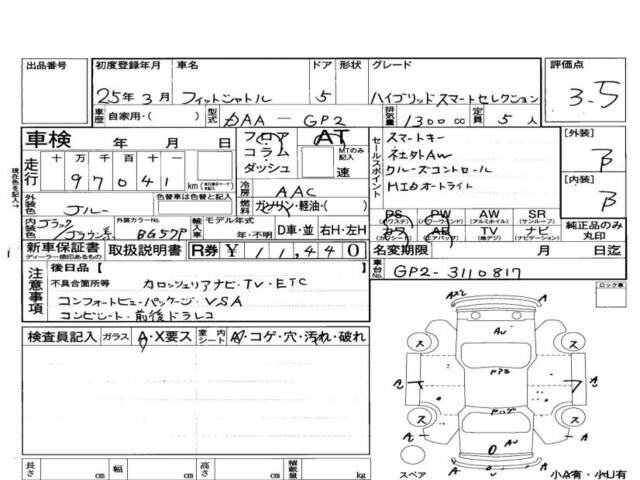 出品番号 初度登録年月 車名 ドア 形状 グレード 評価点
25年3月 フィットシャトル 5 ハイブリッドスマートセレクション 3.5
車歴 自家用・( ) 型式 DAA-GP2 排気量 1300cc 定員 5人
車検 年 月 日 フロア コラム・ダッシュ AT MTのみ記入 速
走行 十 万 千 百 十 一 km
97041
セールスポイント スマートキー
ネェタトAW
クルーズコントロール
HIDオートライト
[外装] B
[内装] B
現在色を記入→
外装色 ブルー 色替車は色替と記入 冷房 AAC
燃料 ガソリン・軽油・( )
内装色 ブラック/ブラウン系 外装カラーNo. BG57P 輸入車 モデル年式 年・不明 D車・並 右H・左H
PS (パワステ) PW (パワーウインド) AW (アルミホイル) SR (サンルーフ)
カワ (カワシート) AB (エアバッグ) TV (地デジ) ナビ (ナビゲーション) 純正品のみ丸印
新車保証書 ディーラー捺印あるもの 取扱説明書 R券 ¥11,440 名変期限 月 日迄
車台No. GP2-3110817
注意事項 後日品( )
不具合箇所等 カロッツェリアナビ・TV・ETC
コンフォートビューパッケージ・VSA
コンビシート・前後ドラレコ
ロック車
検査員記入 ガラス A・X要ス 室内 シート A・コゲ・穴・汚れ・破れ
AX2 A AU
ス ス
A A
ス ス
A U A
スペア 小A有・小U有
長さ cm 幅 cm 高さ cm 積載量 kg